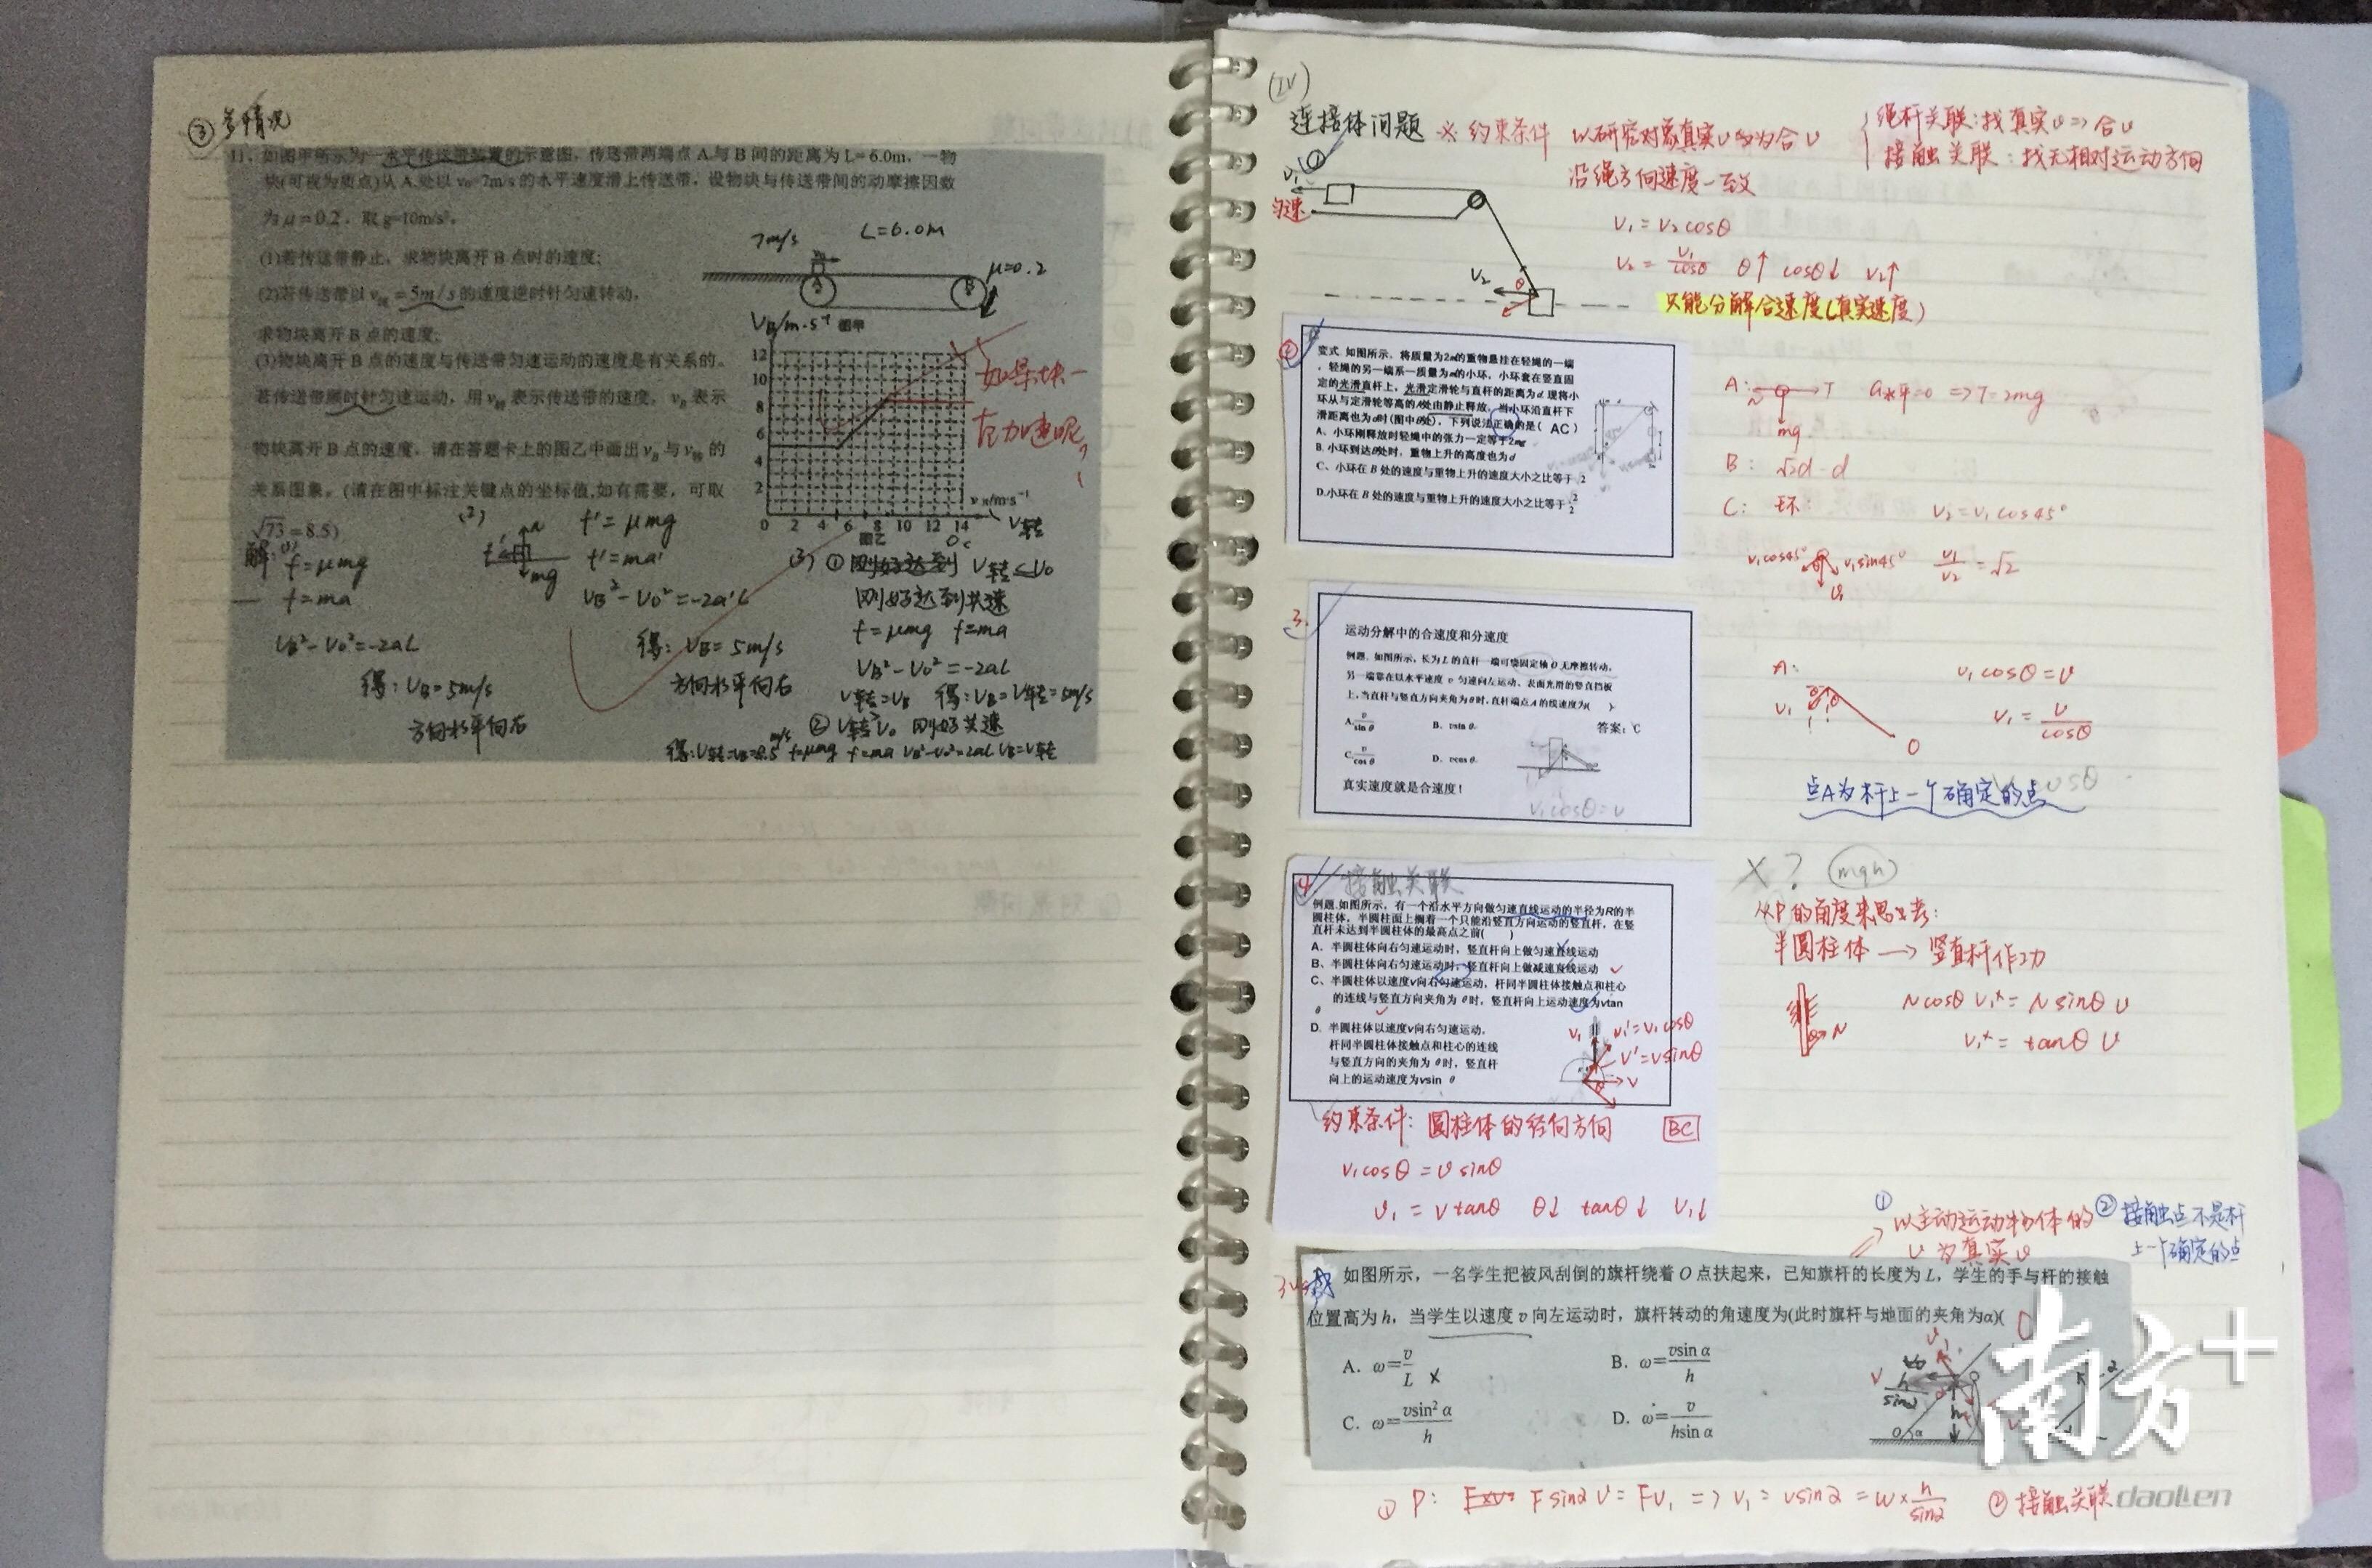 ③ 多情况
11、如图甲所示为一水平传送带装置的示意图，传送带两端点 A 与 B 间的距离为 L=6.0m，一物
块(可视为质点)从 A 处以 v₀=7m/s 的水平速度滑上传送带，设物块与传送带间的动摩擦因数
为 μ=0.2，取 g=10m/s²。
(1)若传送带静止，求物块离开 B 点时的速度;
(2)若传送带以 v转=5m/s 的速度逆时针匀速转动，
求物块离开 B 点的速度;
(3)物块离开 B 点的速度与传送带匀速运动的速度是有关系的。
若传送带顺时针匀速运动，用 v转 表示传送带的速度，vB 表示
物块离开 B 点的速度，请在答题卡上的图乙中画出 vB 与 v转 的
关系图象。(请在图中标注关键点的坐标值,如有需要，可取
√73=8.5)
7m/s L=6.0m
μ=0.2
A B
图甲
VB/m·s⁻¹
12
10
8
6
4
2
0 2 4 6 8 10 12 14
V转
图乙
解:(1) f=μmg
f=ma
VB²-V0²=-2aL
得: VB=5m/s
方向水平向右
(2)
N
f'
mg
f'=μmg
f'=ma'
VB²-V0²=-2a'L
得: VB=5m/s
方向水平向右
(3) ① 刚好达到 V转≤V0
刚好达到共速
f=μmg f=ma
VB²-V0²=-2aL
V转=VB 得: VB=V转=5m/s
② V转>V0 刚好共速
得: V转=VB=8.5m/s f=μmg f=ma VB²-V0²=2aL VB=V转
(IV)
连接体问题 ※ 约束条件 以研究对象真实v为合v
沿绳方向速度一致
绳杆关联: 找真实v⇒合v
接触关联: 找无相对运动方向
①
V₁
匀速
V₂
θ
V₁=V₂cosθ
V₂=V₁/cosθ θ↑ cosθ↓ V₂↑
只能分解合速度(真实速度)
②
变式.如图所示，将质量为2m的重物悬挂在轻绳的一端
，轻绳的另一端系一质量为m的小环，小环套在竖直固
定的光滑直杆上，光滑定滑轮与直杆的距离为d.现将小
环从与定滑轮等高的A处由静止释放，当小环沿直杆下
滑距离也为d时(图中B处)，下列说法正确的是( AC )
A、小环刚释放时轻绳中的张力一定等于2mg
B.小环到达B处时，重物上升的高度也为d
C、小环在 B 处的速度与重物上升的速度大小之比等于 2
D.小环在 B 处的速度与重物上升的速度大小之比等于 2/2
A: N T a水平=0 ⇒T=2mg
mg
B: √2d-d
C: 环 V₂=V₁cos45°
V₁cos45° V₁sin45° V₁/V₂=√2
V₁
3.
运动分解中的合速度和分速度
例题.如图所示，长为 L 的直杆一端可绕固定轴 O 无摩擦转动，
另一端靠在以水平速度 v 匀速向左运动、表面光滑的竖直挡板
上,当直杆与竖直方向夹角为θ时,直杆端点A的线速度为( )
A. v/sin θ B. vsin θ 答案: C
C. v/cos θ D. vcos θ
真实速度就是合速度!
V₁cosθ=v
A: V₁cosθ=v
V₁ θ V₁=v/cosθ
O
点A为杆上一个确定的点
4 接触关联
例题.如图所示，有一个沿水平方向做匀速直线运动的半径为R的半
圆柱体，半圆柱面上搁着一个只能沿竖直方向运动的竖直杆，在竖
直杆未达到半圆柱体的最高点之前( )
A. 半圆柱体向右匀速运动时，竖直杆向上做匀速直线运动
B、半圆柱体向右匀速运动时，竖直杆向上做减速直线运动 ✓
C、半圆柱体以速度v向右匀速运动，杆同半圆柱体接触点和柱心
的连线与竖直方向夹角为 θ时，竖直杆向上运动速度为vtan
θ
D. 半圆柱体以速度v向右匀速运动，
杆同半圆柱体接触点和柱心的连线
与竖直方向的夹角为 θ时，竖直杆
向上的运动速度为vsin θ
V₁ V₁'=V₁cosθ
V'=vsinθ
V
约束条件: 圆柱体的径向方向 BC
V₁cosθ=vsinθ
V₁=vtanθ θ↓ tanθ↓ V₁↓
×? mgh
从P的角度来思考:
半圆柱体→竖直杆作功
N
Ncosθ V₁=Nsinθ v
V₁=tanθ v
① 以主动运动物体的
v为真实v
② 接触点不是杆
上一个确定的点
如图所示，一名学生把被风刮倒的旗杆绕着 O 点扶起来，已知旗杆的长度为 L，学生的手与杆的接触
位置高为 h，当学生以速度 v 向左运动时，旗杆转动的角速度为(此时旗杆与地面的夹角为α)(
A. ω=v/L × B. ω=vsin α/h
C. ω=vsin² α/h D. ω=v/hsin α
h/sinα
O α
① P: Fsinα v=FV₁ ⇒V₁=vsinα=ω×h/sinα ② 接触关联
南方+
daolien